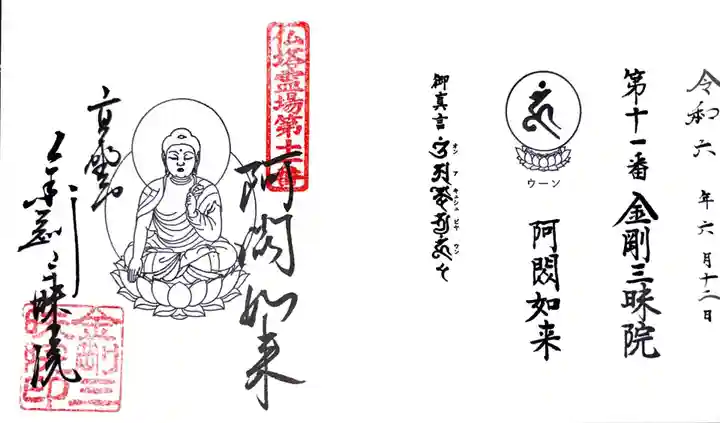 令和六年六月十二日
第十一番 金剛三昧院
ウーン
阿閦如来
御真言
オン ア キシュ ビヤ ウン
仏塔霊場第十一番
阿閦如来
高野山
金剛三昧院
金剛三昧院印